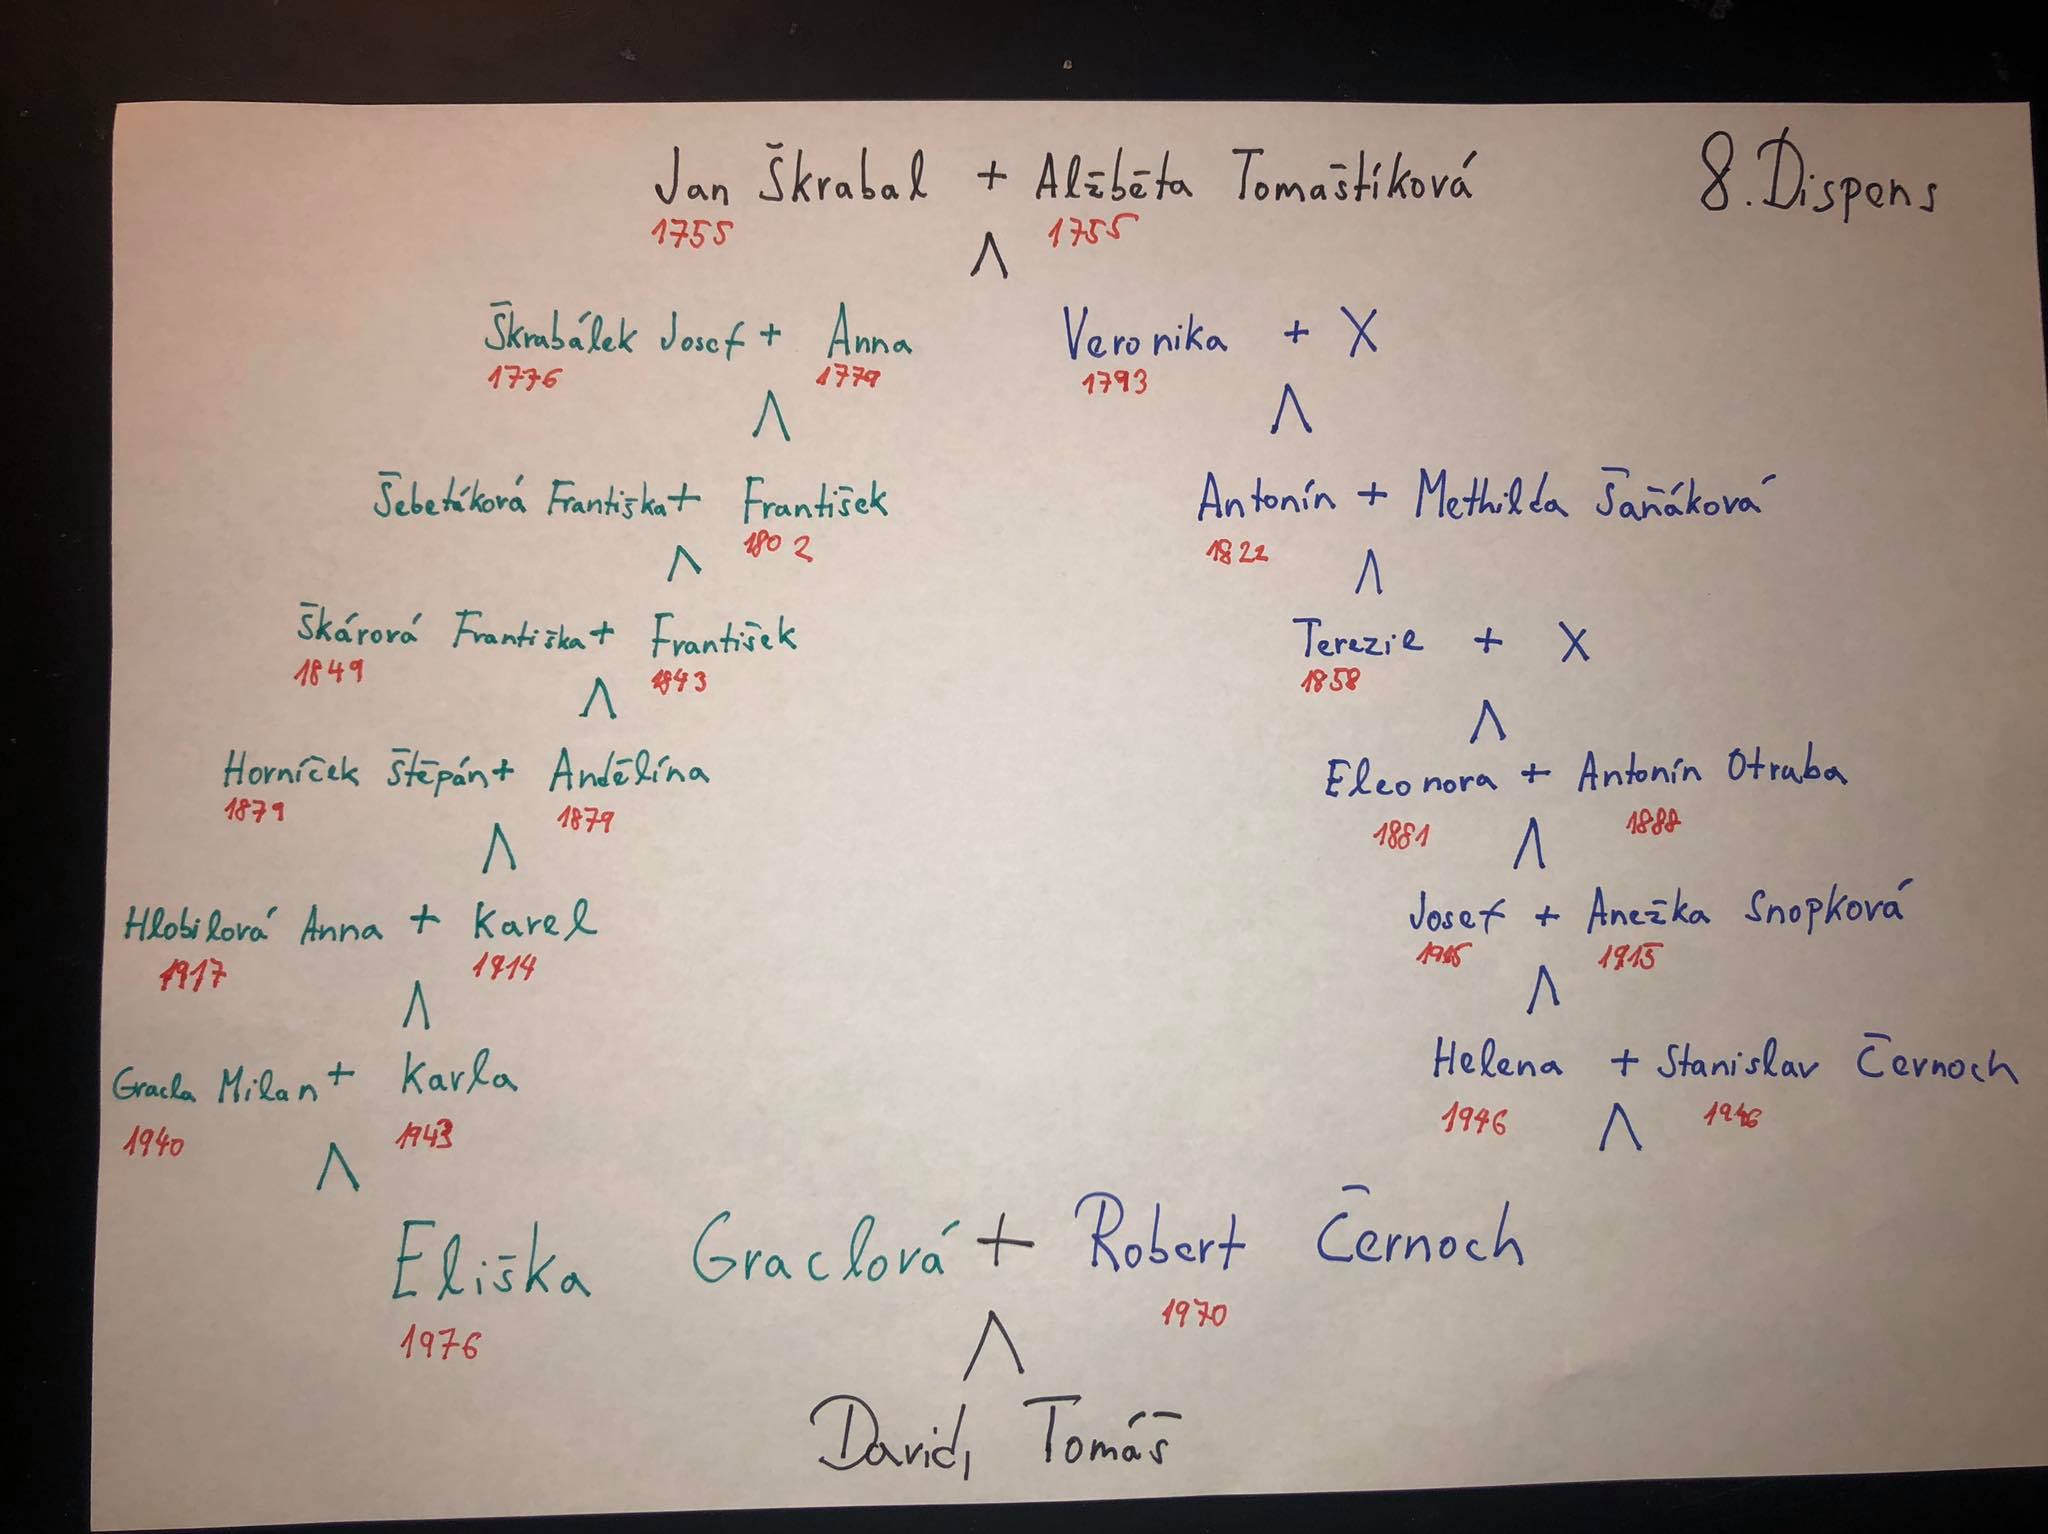 Jan Škrabal + Alžběta Tomaštíková 8. Dispens
1755 1755
Škrabálek Josef + Anna Veronika + X
1776 1779 1793
Šebetáková Františka + František Antonín + Methilda Šaňáková
1802 1822
Škárová Františka + František Terezie + X
1849 1843 1858
Horníček Štěpán + Andělína Eleonora + Antonín Otruba
1879 1879 1881 1888
Hlobilová Anna + Karel Josef + Anežka Snopková
1917 1914 1915
Gracla Milan + Karla Helena + Stanislav Černoch
1940 1943 1946 1946
Eliška Graclová + Robert Černoch
1976 1970
David, Tomáš